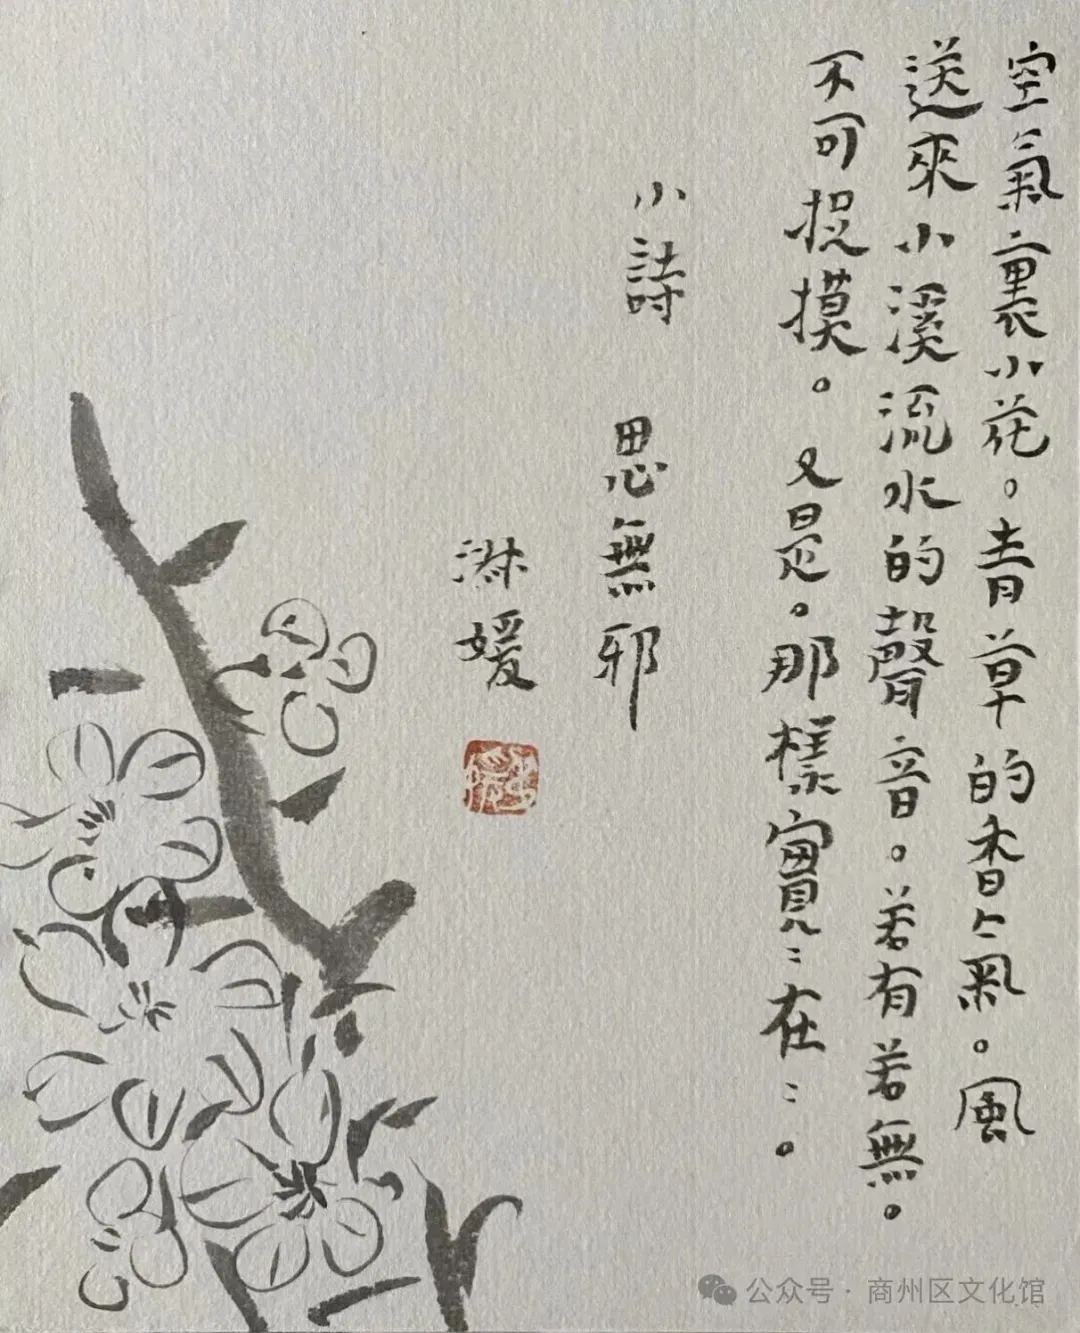 空氣裏小花。青草的香氣。風
送來小溪流水的聲音。若有若無。
不可捉摸。又是。那樣實〻在〻。
小詩 思無邪
淋媛
公众号·商州区文化馆